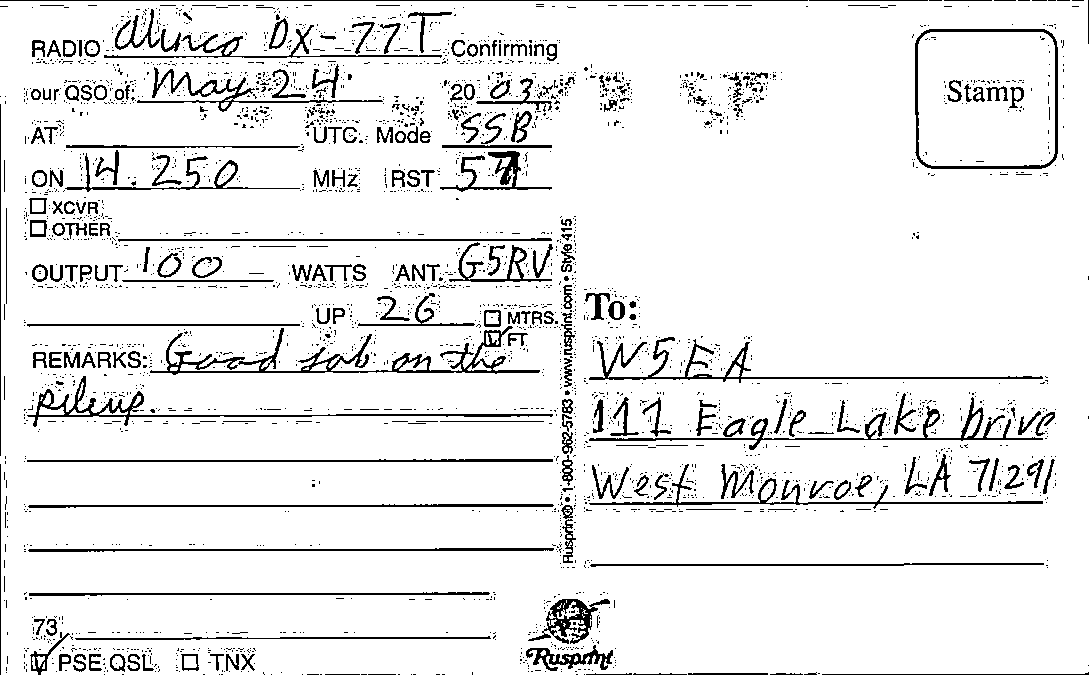 RADIO Alinco DX-77T Confirming
our QSO of May 24 20 03
AT UTC. Mode SSB
ON 14.250 MHz RST
XCVR
OTHER
OUTPUT 100 WATTS ANT. G5RV
UP 26 MTRS.
FT
REMARKS: Good job on the
pileup.
73,
PSE QSL TNX
Rusprint® • 1-800-962-5783 • www.rusprint.com • Style 415
Rusprint
Stamp
To:
W5EA
111 Eagle Lake Drive
West Monroe, LA 71291